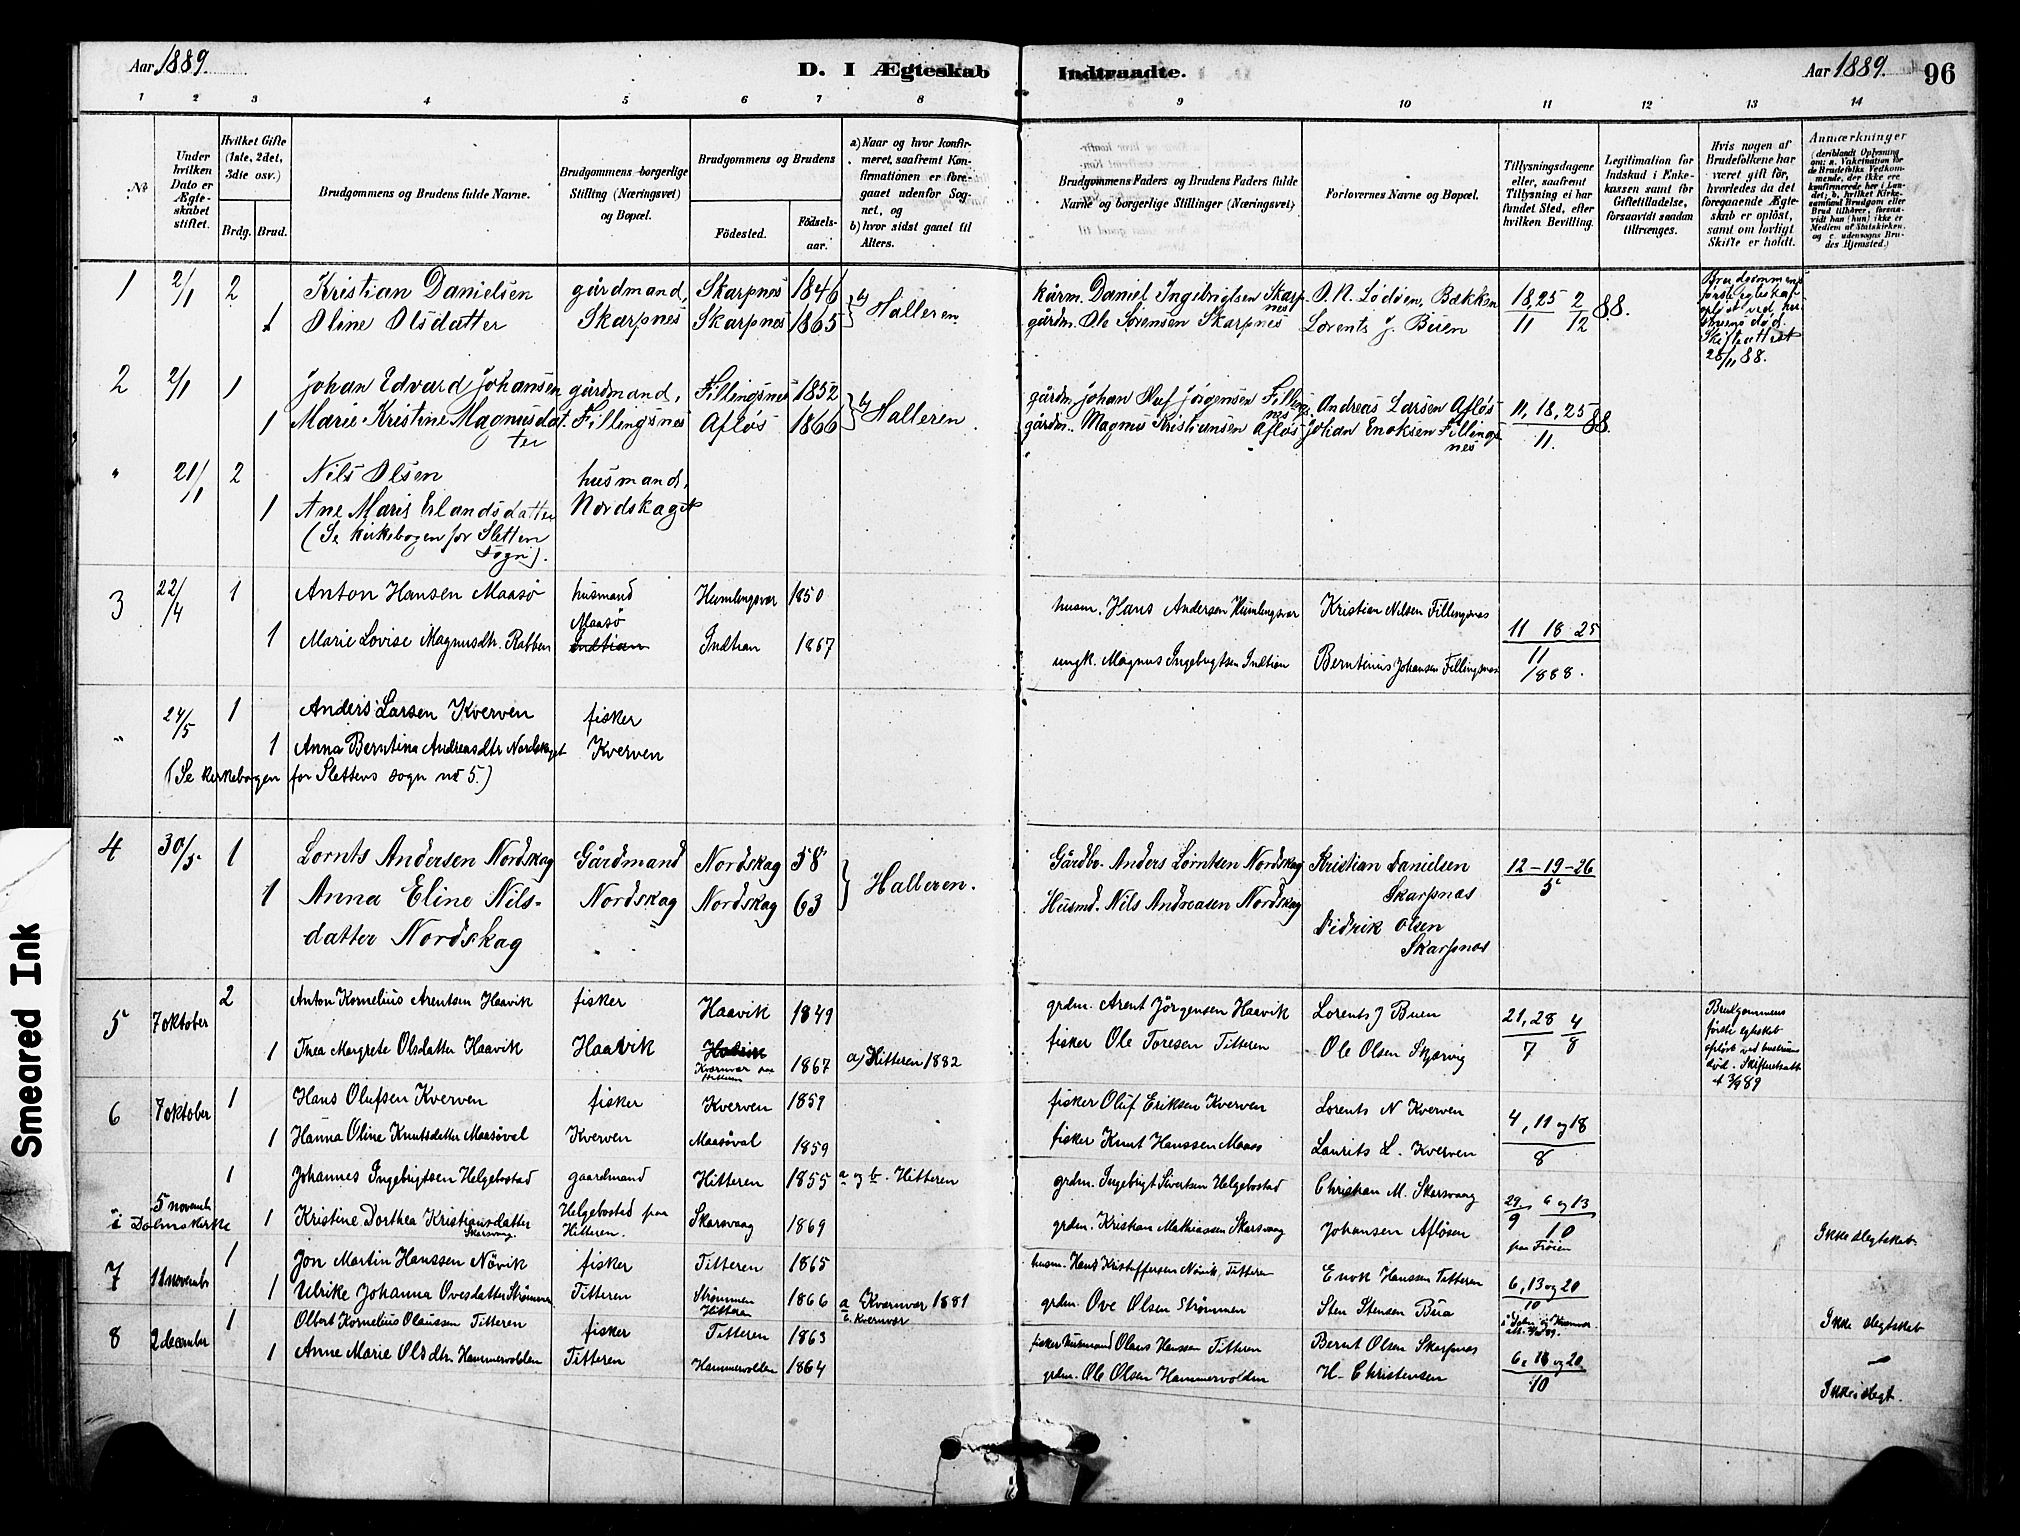 Aar 1889.
D. I Ægteskab
Indtraadte.
Aar 1889.
96
1 2 3 4 5 6 7 8
9 10 11 12 13 14
№
Under hvilken Dato er Ægteskabet stiftet.
Hvilket Gifte (1ste, 2det, 3die osv.)
Brdg. Brud.
Brudgommens og Brudens fulde Navne.
Brudgommens borgerlige Stilling (Næringsvei) og Bopæl.
Brudgommens og Brudens
Födested.
Födselsaar.
a) Naar og hvor konfirmeret, saafremt Konfirmationen er foregaaet udenfor Sognet, og
b) hvor sidst gaaet til Alters.
Brudgommens Faders og Brudens Faders fulde Navne og borgerlige Stillinger (Næringsvei)
Forlovernes Navne og Bopæl.
Tillysningsdagene eller, saafremt Tillysning ei har fundet Sted, efter hvilken Bevilling.
Legitimation for Indskud i Enkekassen samt for Giftetilladelse, forsaavidt saadan tiltrænges.
Hvis nogen af Brudefolkene har været gift för, hvorledes da det foregaaende Ægteskab er oplöst, samt om lovligt Skifte er holdt.
Anmærkninger
1 2/1 2 Kristian Danielsen gårdmand, Skarpnes 1846 b) Halleren
1 Oline Olsdatter Skarpnes Skarpnes 1865
Daniel Ingebrigtsen Skarpnes O. N. Lödöen, Bækken 18, 25/11 2/12 88.
gårdm. Ole Sörensen Skarpnes Lorents J. Buen
Brudgommens første egteskab opløst ved hustruens død. Skifteattest 28/11 88.
2 2/1 1 Johan Edvard Johansen gårdmand, Fillingsnes 1852 b) Halleren.
1 Marie Kristine Magnusdatter Fillingsnes Afløs 1866
gårdm. Johan Oluf Jörgensen Fillingsnes Andreas Larsen Afløs 11, 18, 25/11 88.
gårdm. Magnus Kristiansen Afløs Johan Enoksen Fillingsnes
" 21/1 2 Nils Olsen husmand,
1 Ane Marie Erlandsdatter Nordskaget
(Se kirkebogen for Sletten Sogn).
3 22/4 1 Anton Hansen Maasø husmand Humlingsvær 1850
Maasø
1 Marie Lovise Magnusdtr. Rabben Indtian Indtian 1867
husm. Hans Andersen Humlingsvær Kristian Nilsen Fillingsnes
11 18 25/11 1888.
ungk. Magnus Ingebrigtsen Indtian Berntinus Johansen Fillingsnes
" 24/5 1 Anders Larsen Kverven fisker
1 Anna Berntina Andreasdtr Nordskaget Kverven
(Se kirkebogen for Slettens sogn no 5.)
4 30/5 1 Lornts Andersen Nordskag Gårdmand Nordskag 58 Halleren.
1 Anna Eline Nils- Nordskag Nordskag 63
datter Nordskag
Gårdbr. Anders Lorntsen Nordskag Kristian Danielsen Skarpnes 12-19-26/5
Husmd. Nils Andreasen Nordskag Didrik Olsen Skarpnes
5 7 oktober 2 Anton Kornelius Arentsen Haavik fisker Haavik 1849
1 Thea Margrete Olsdatter Haavik Haavik Kvernvær paa Hitteren 1867 a) Hitteren 1882
grdm. Arent Jörgensen Haavik Lorents J Buen 21, 28/7 4/8
fisker Ole Toresen Titteren Ole Olsen Skjærvig
Brudgommens første egteskab opløst ved hustruens død. Skifteretsattest
6 7 oktober 1 Hans Olufsen Kverven fisker Kverven 1859
1 Hanna Oline Knutsdatter Maasöval Kverven Maasöval 1859
fisker Oluf Eriksen Kverven Lorents N Kverven 4, 11 og 18/8
fisker Knut Hanssen Maasö Laurits L. Kverven
" 5 novemb. 1 Johannes Ingebrigtsen Helgebostad gaardmand Hitteren 1855 a og b. Hitteren
i Dolmø kirke 1 Kristine Dorthea Kristiansdatter Skarsvaag. Helgebostad paa Hitteren. Skarsvaag 1869
grdm. Ingebrigt Sivertsen Helgebostad Christian M. Skarsvaag 29/9 6 og 13/10 paa Frøien
grdm. Kristian Mathiassen Skarsvaag Johansen Afløsen
Ikke slegtskab.
7 11 november 1 Jon Martin Hanssen Növik fisker Titteren 1865
1 Ulrike Johanna Ovesdatter Strømmen Titteren Strømmen Hitteren 1866 a Kvernvær 1881 b. Kvernvær
husm. Hans Kristoffersen Növik, Titteren Enok Hanssen Titteren 6, 13 og 20/10
grdm. Ove Olsen Strømmen Sten Stensen Bua
Ikke slegtskab
8 2 december 1 Olbert Kornelius Olaussen Titteren fisker Titteren 1863
1 Anne Marie Olsdtr. Hammervolden Titteren Hammervolden 1864
fisker husmand Olaus Hanssen Titteren Bernt Olsen Skarpnes 6, 13 og 20/10
grdm. Ole Olsen Hammervolden H. Christensen
Ikke slegt.
Smeared Ink